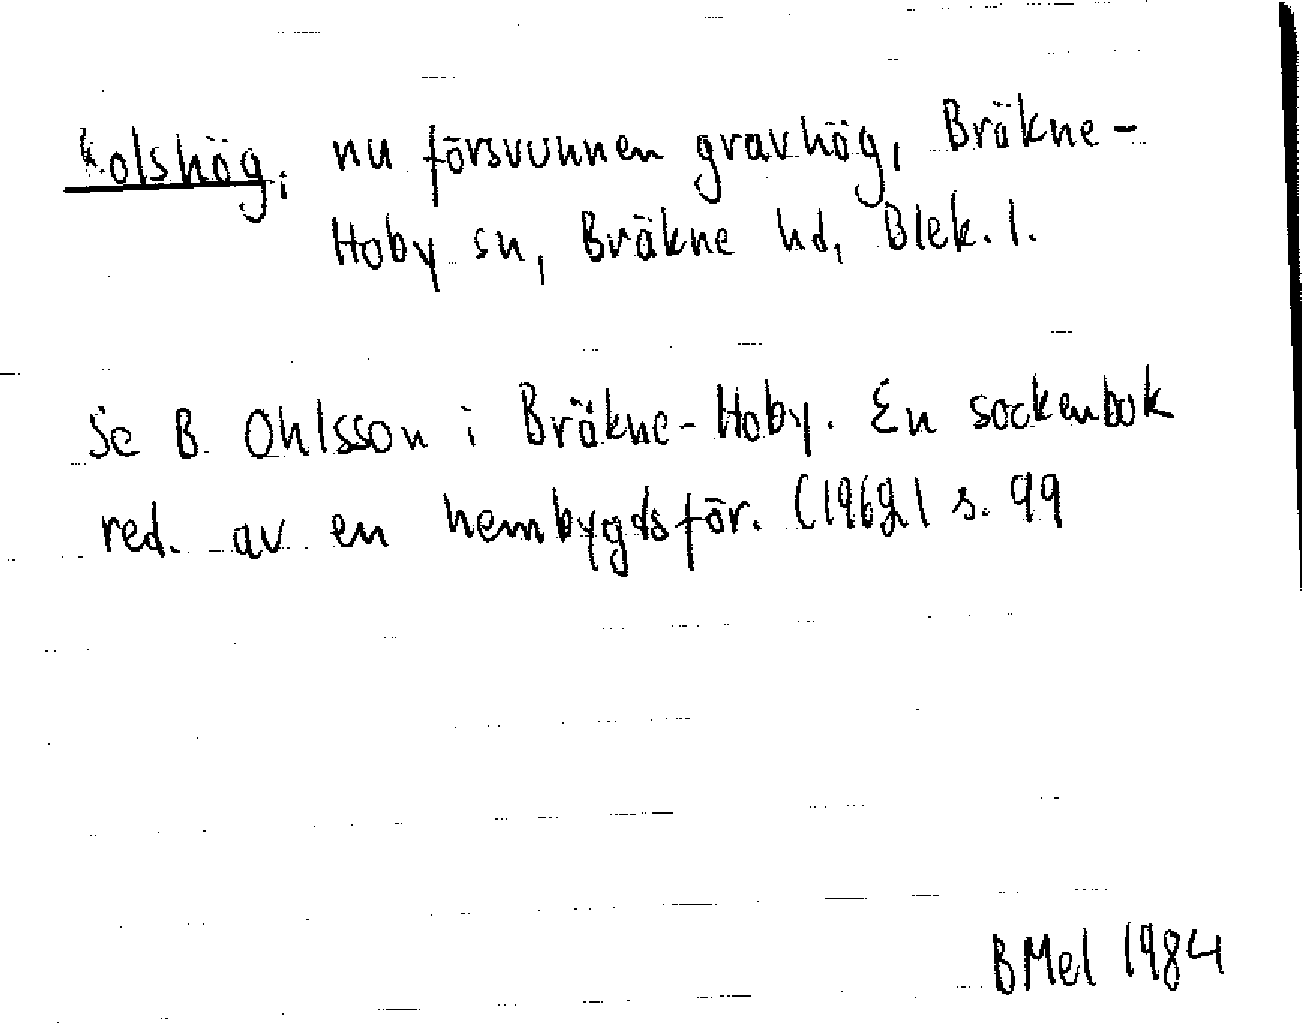 Kolshög, nu försvunnen gravhög, Bräkne-
Hoby sn, Bräkne hd, Blek. l.
Se B. Ohlsson i Bräkne-Hoby. En sockenbok
red. av en hembygdsför. (1962) s. 99
BMel 1984